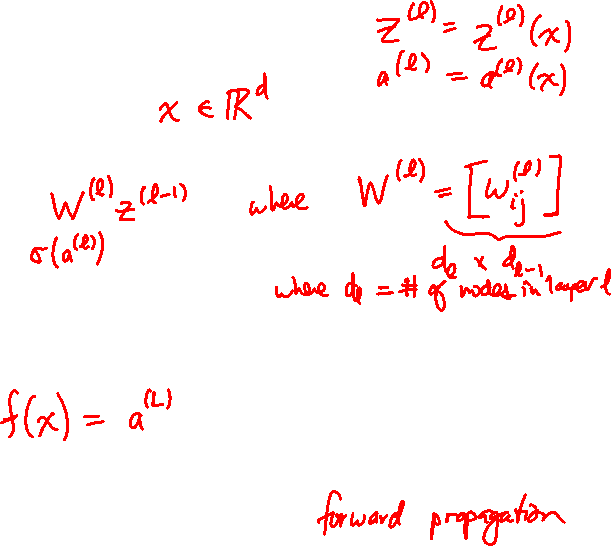 z^(ℓ) = z^(ℓ)(x)
a^(ℓ) = a^(ℓ)(x)
x ∈ ℝ^d
W^(ℓ) z^(ℓ-1) where W^(ℓ) = [w_ij^(ℓ)]
σ(a^(ℓ))
d_ℓ × d_ℓ-1
where d_ℓ = # of nodes in layer ℓ
f(x) = a^(L)
forward propagation